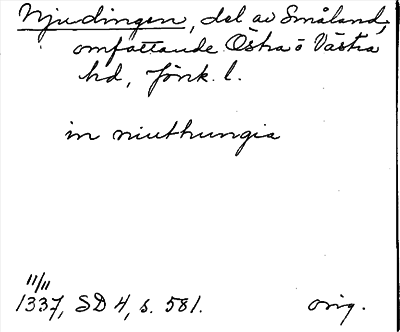 Njudingen, del av Småland,
omfattande Östra o Västra
hd, Jönk. l.
in niuthungia
11/11
1337, SD 4, s. 581. orig.